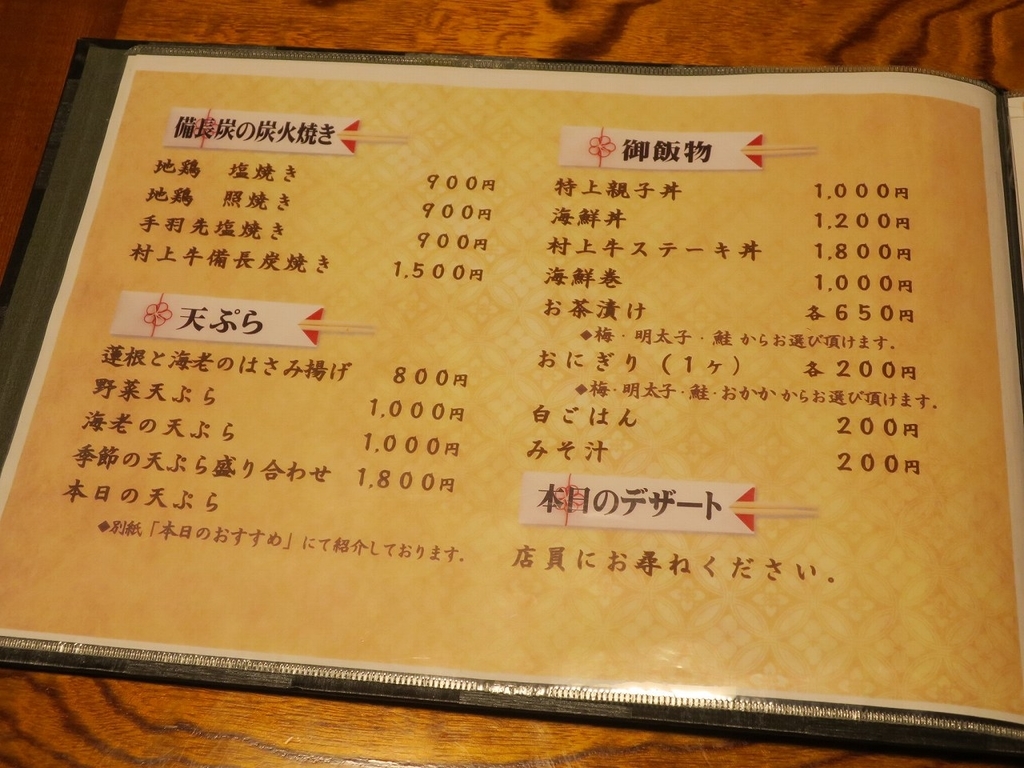 備長炭の炭火焼き
地鶏　塩焼き 900円
地鶏　照焼き 900円
手羽先塩焼き 900円
村上牛備長炭焼き 1,500円
天ぷら
蓮根と海老のはさみ揚げ 800円
野菜天ぷら 1,000円
海老の天ぷら 1,000円
季節の天ぷら盛り合わせ 1,800円
本日の天ぷら
◆別紙「本日のおすすめ」にて紹介しております．
御飯物
特上親子丼 1,000円
海鮮丼 1,200円
村上牛ステーキ丼 1,800円
海鮮巻 1,000円
お茶漬け 各650円
◆梅・明太子・鮭 からお選び頂けます．
おにぎり（1ヶ） 各200円
◆梅・明太子・鮭・おかか からお選び頂けます．
白ごはん 200円
みそ汁 200円
本日のデザート
店員にお尋ねください．